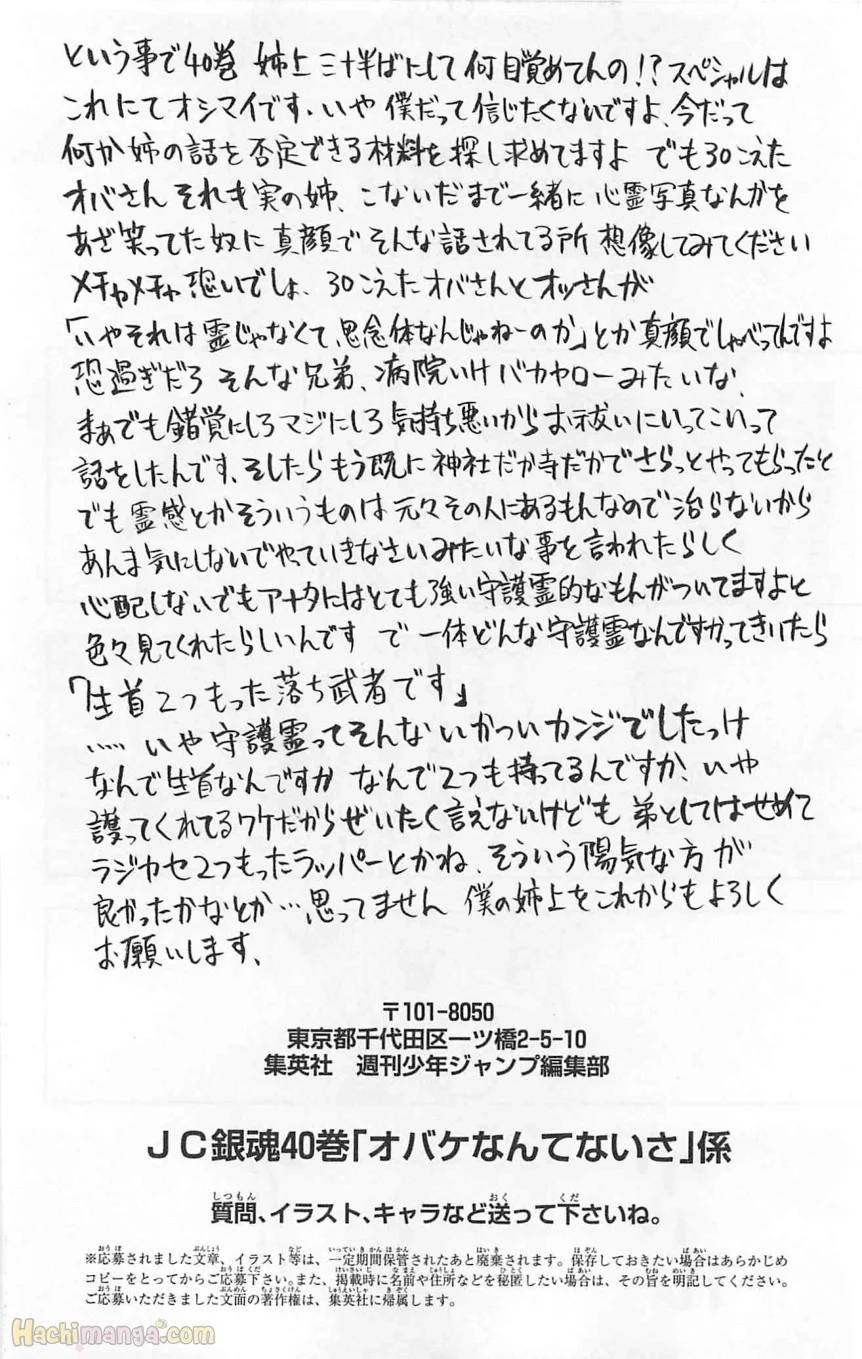 という事で40巻 姉上 三十半ばにして何目覚めてんの!?スペシャルは
これにてオシマイです。いや僕だって信じたくないですよ、今だって
何か姉の話を否定できる材料を探し求めてますよ でも30こえた
オバさん それも実の姉、こないだまで一緒に心霊写真なんかを
あざ笑ってた奴に真顔でそんな話されてる所想像してみてください
メチャメチャ恐いでしょ、30こえたオバさんとオッさんが
「いやそれは霊じゃなくて、思念体なんじゃねーのか」とか真顔でしゃべってんですよ
恐過ぎだろ そんな兄弟、病院いけバカヤローみたいな、
まぁでも錯覚にしろマジにしろ気持ち悪いからお祓いにいってこいって
話をしたんです、そしたらもう既に神社だか寺だかでさらっとやってもらったと
でも霊感とかそういうものは元々その人にあるもんなので治らないから
あんま気にしないでやっていきなさいみたいな事を言われたらしく
心配しないでもアナタにはとても強い守護霊的なもんがついてますよと
色々見てくれたらしいんです で 一体どんな守護霊なんですかってきいたら
「生首2つもった落ち武者です」
…… いや守護霊ってそんないかついカンジでしたっけ
なんで生首なんですか なんで2つも持ってるんですか、いや
護ってくれてるワケだからぜいたく言えないけども 弟としてはせめて
ラジカセ2つもったラッパーとかね、そういう陽気な方が
良かったかなとか…思ってません 僕の姉上をこれからもよろしく
お願いします、
〒101-8050
東京都千代田区一ツ橋2-5-10
集英社 週刊少年ジャンプ編集部
JC銀魂40巻「オバケなんてないさ」係
質問、イラスト、キャラなど送って下さいね。
※応募されました文章、イラスト等は、一定期間保管されたあと廃棄されます。保存しておきたい場合はあらかじめ
コピーをとってからご応募下さい。また、掲載時に名前や住所などを秘匿したい場合は、その旨を明記してください。
ご応募いただきました文面の著作権は、集英社に帰属します。
Hachimanga.com